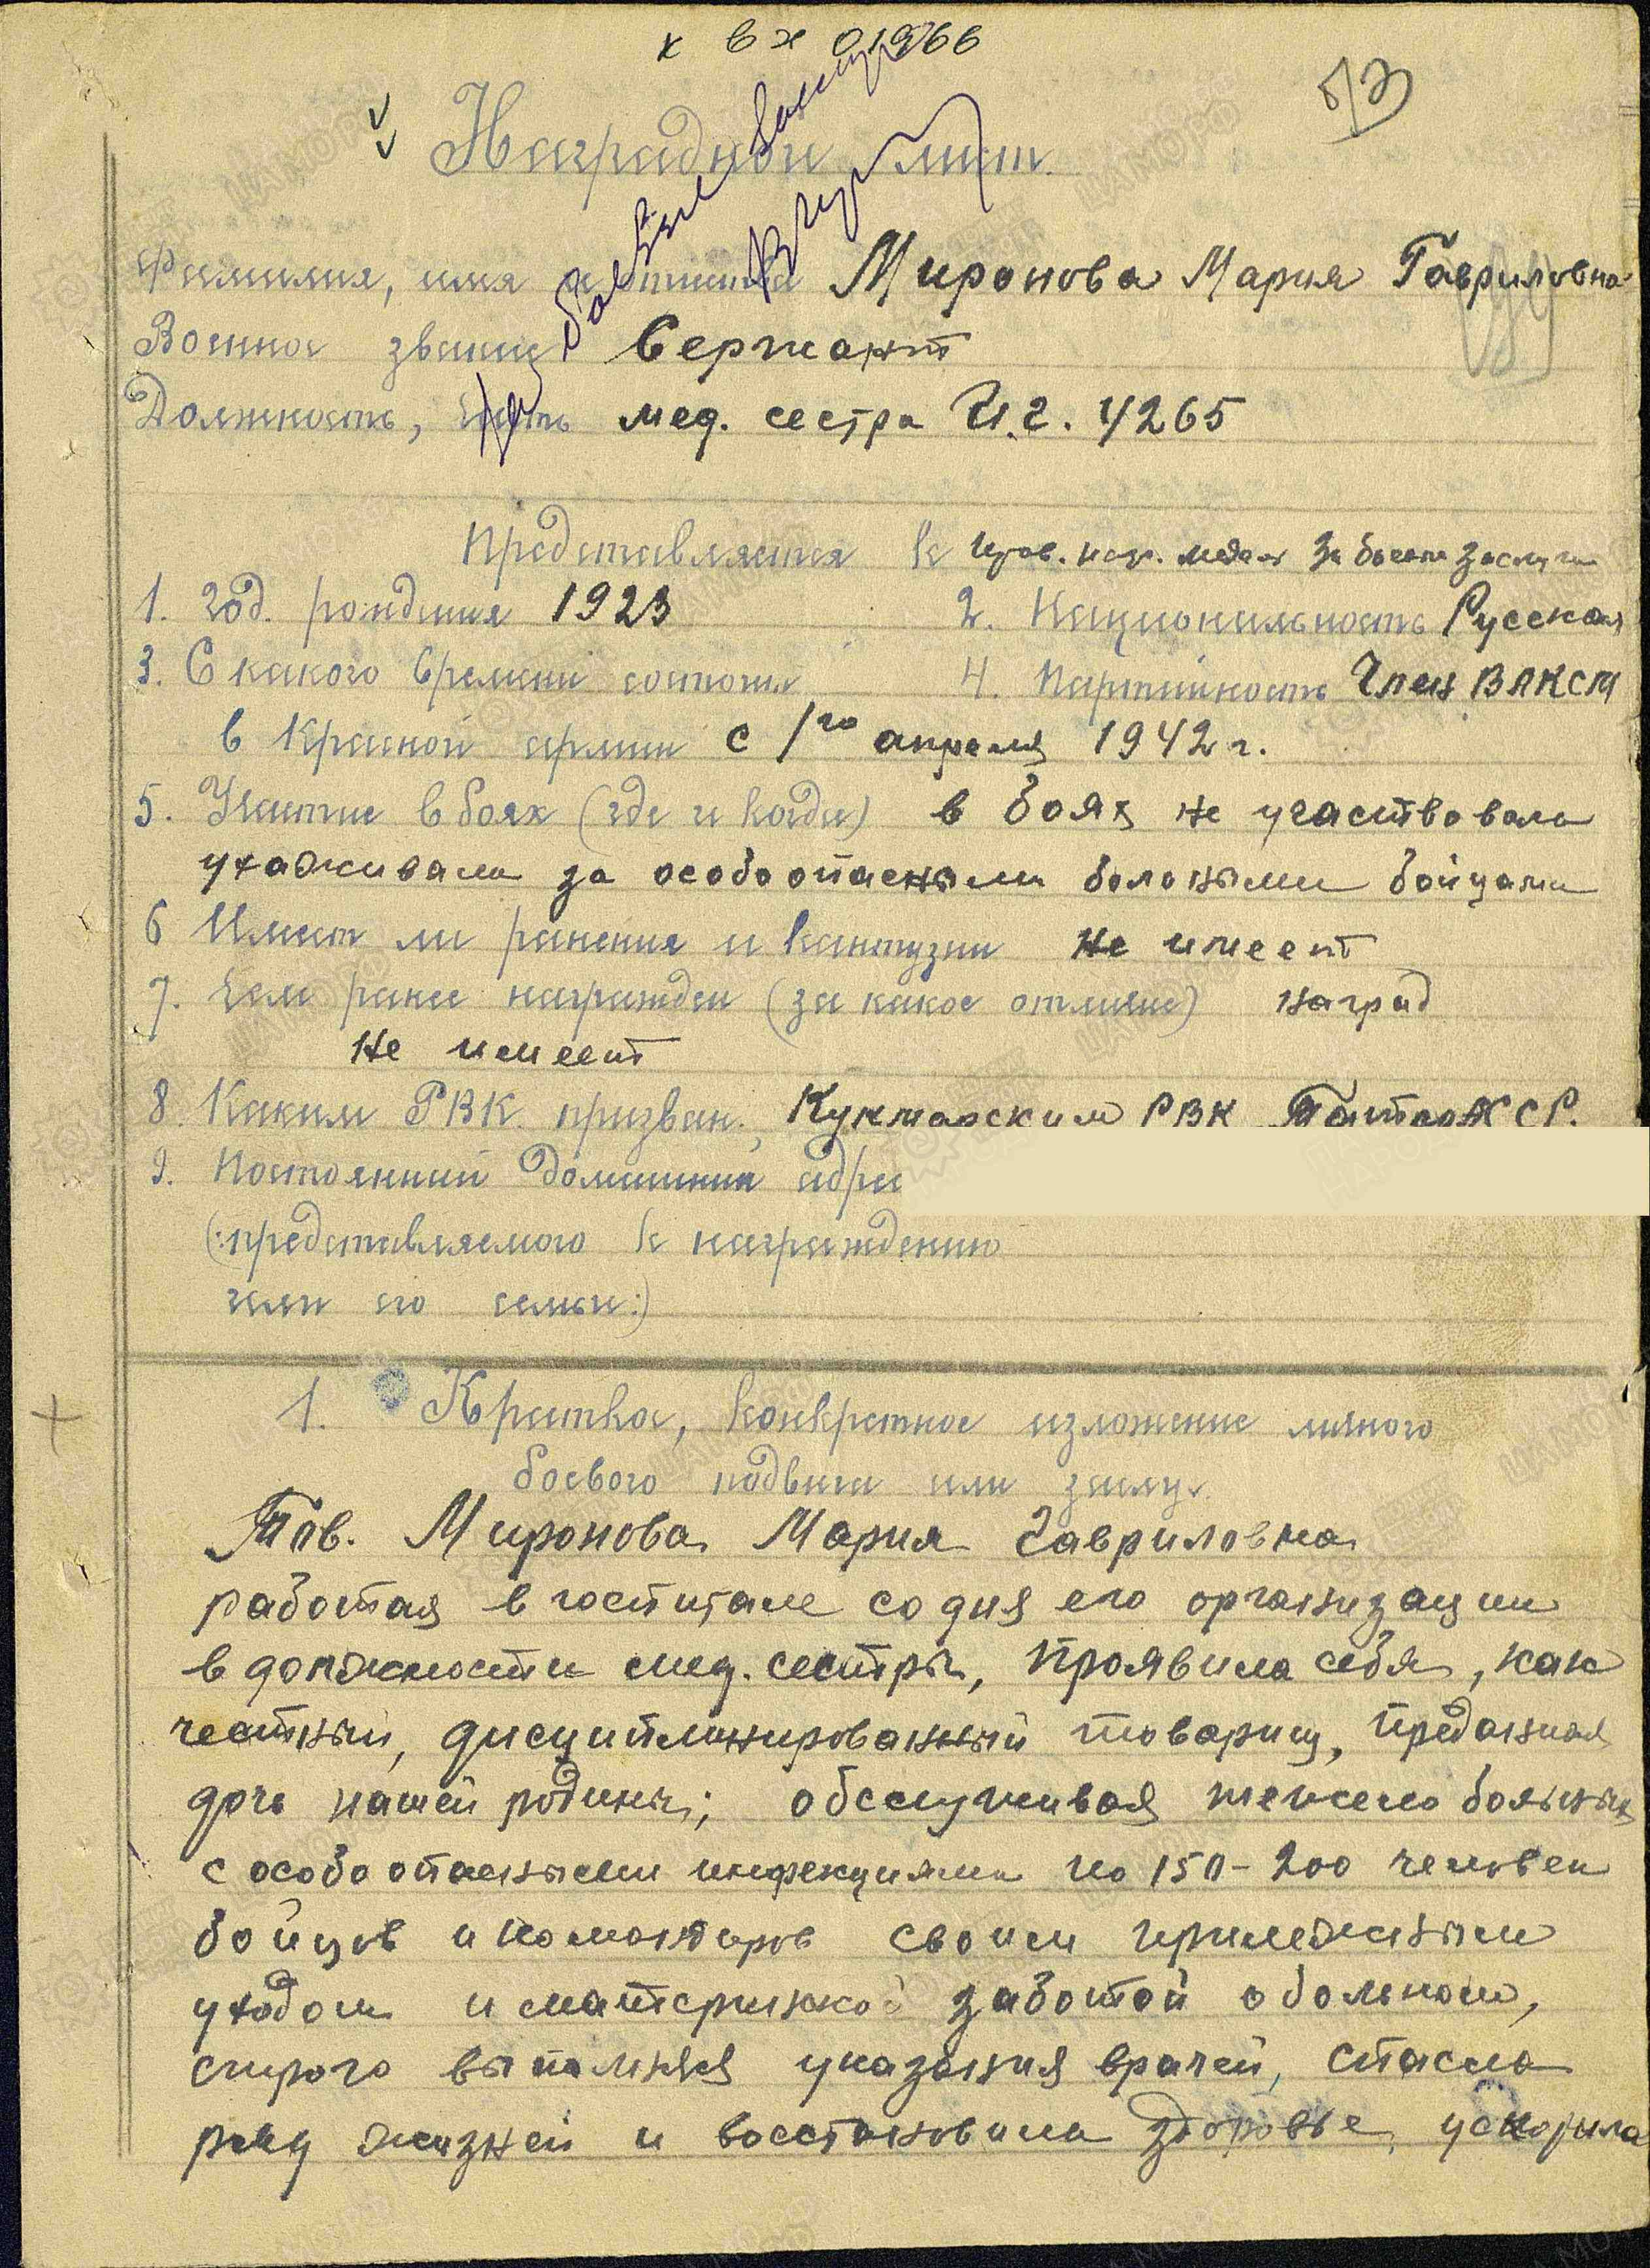 к вх 01966
Наградной лист.
Фамилия, имя и отчество Миронова Мария Гавриловна
Военное звание Сержант
Должность, часть мед. сестра И.г. 4265
За боевые заслуги
Представляется к прав. наг. медаль За боевые заслуги
1. Год. рождения 1923 2. Национальность Русская
3. С какого времени состоит 4. Партийность Член ВЛКСМ
в Красной армии с 1го апреля 1942 г.
5. Участие в боях (где и когда) в боях не участвовала
ухаживала за особоопасными больными бойцами
6 Имеет ли ранения и контузии не имеет
7. Чем ранее награжден (за какое отличие) наград
не имеет
8. Каким РВК. призван. Кукморским РВК ТатарАССР.
9. Постоянный домашний адрес
(:представляемого к награждению
или его семьи:)
1. Краткое, конкретное изложение личного
боевого подвига или заслуг.
Тов. Миронова Мария Гавриловна
работая в госпитале со дня его организации
в должности мед. сестры, проявила себя, как
честный, дисциплинированный товарищ, преданная
дочь нашей родины; обслуживая тяжело больных
с особо опасными инфекциями по 150-200 человек
бойцов и командиров своим прилежным
уходом и материнской заботой о больном,
строго выполняя указания врачей, спасла
ряд жизней и восстановила здоровье, ускорила